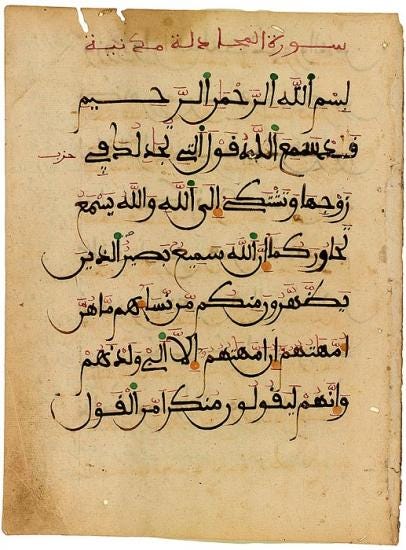 سورة المجادلة مدنية
بسم الله الرحمن الرحيم
قد سمع الله قول التي تجدلك في
حزب
زوجها وتشتكي إلى الله والله يسمع
تحاوركما إن الله سميع بصير الذين
يظهرون منكم من نسائهم ما هن
أمهتهم إن أمهتهم إلا الئي ولدنهم
وإنهم ليقولون منكرا من القول